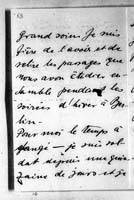 53
grand soin. Je suis
fière de l'avoir et de
relire les passages que
nous avons étudiés en-
semble pendant les
soirées d'hiver à
lin.
Pour moi le temps a
changé — je suis sol-
dat depuis une quin-
zaine de jours et je